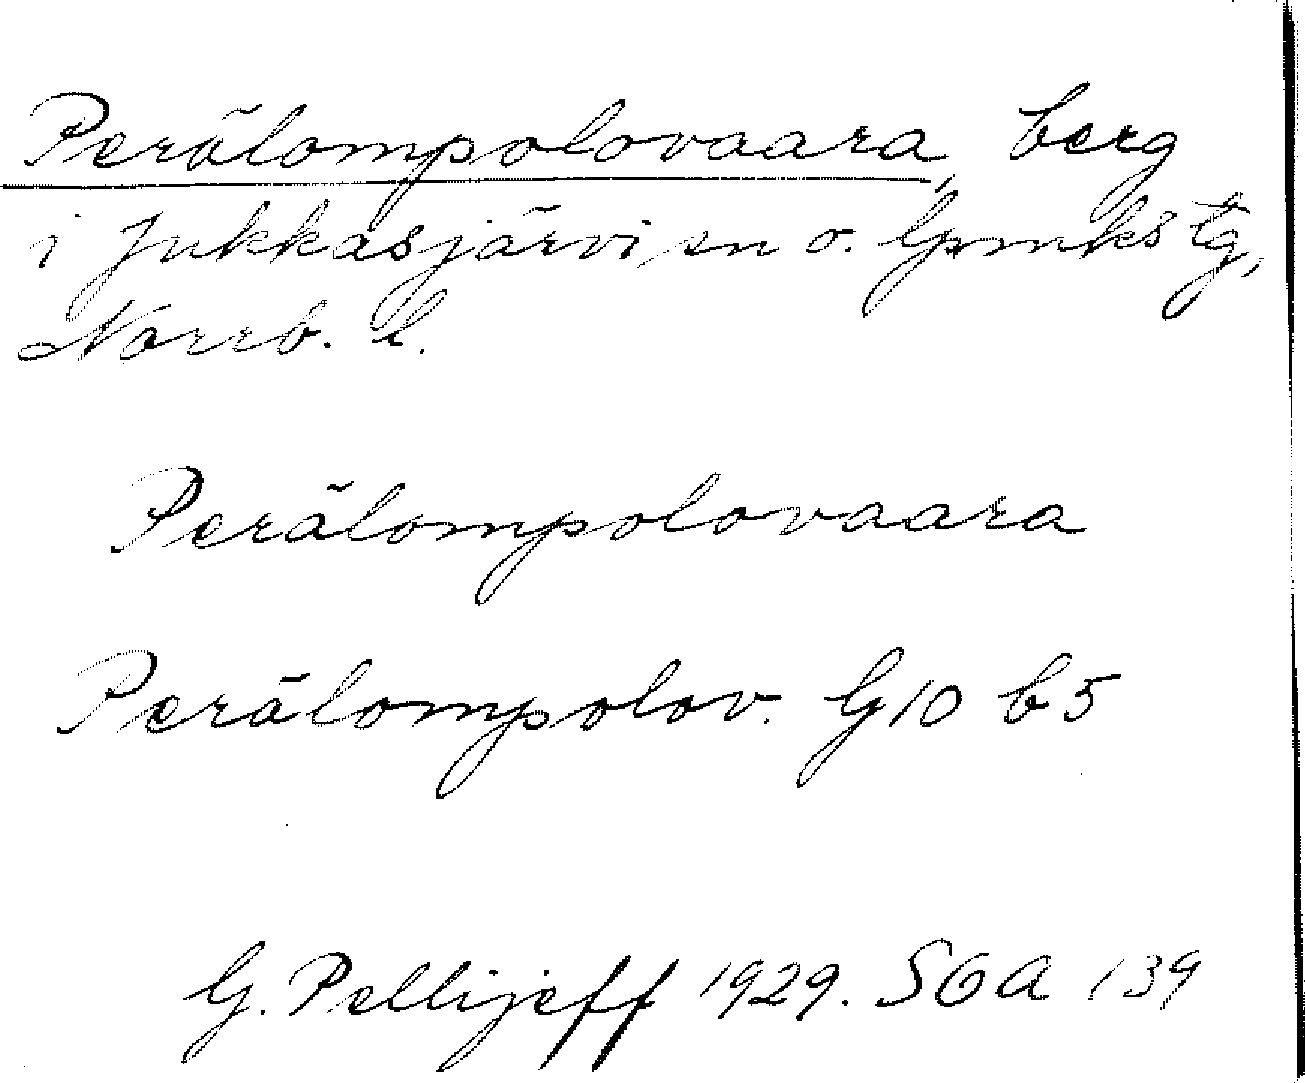 Perälompolovaara, berg
i Jukkasjärvi sn o. lpmks tg,
Norrb. l.
Perälompolovaara
Perälompolov. G10 b5
G. Pellijeff 1929. SOA 139